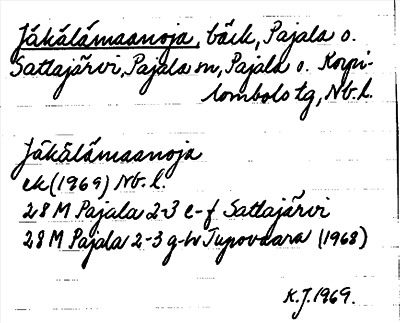 Jäkälämaanoja, bäck, Pajala o.
Sattajärvi, Pajala sn, Pajala o. Korpi-
lombolo tg, Nb. l.
Jäkälämaanoja
ek (1969) Nb. l.
28 M Pajala 2-3 e-f Sattajärvi
28 M Pajala 2-3 g-h Jupovaara (1968)
K.J. 1969.